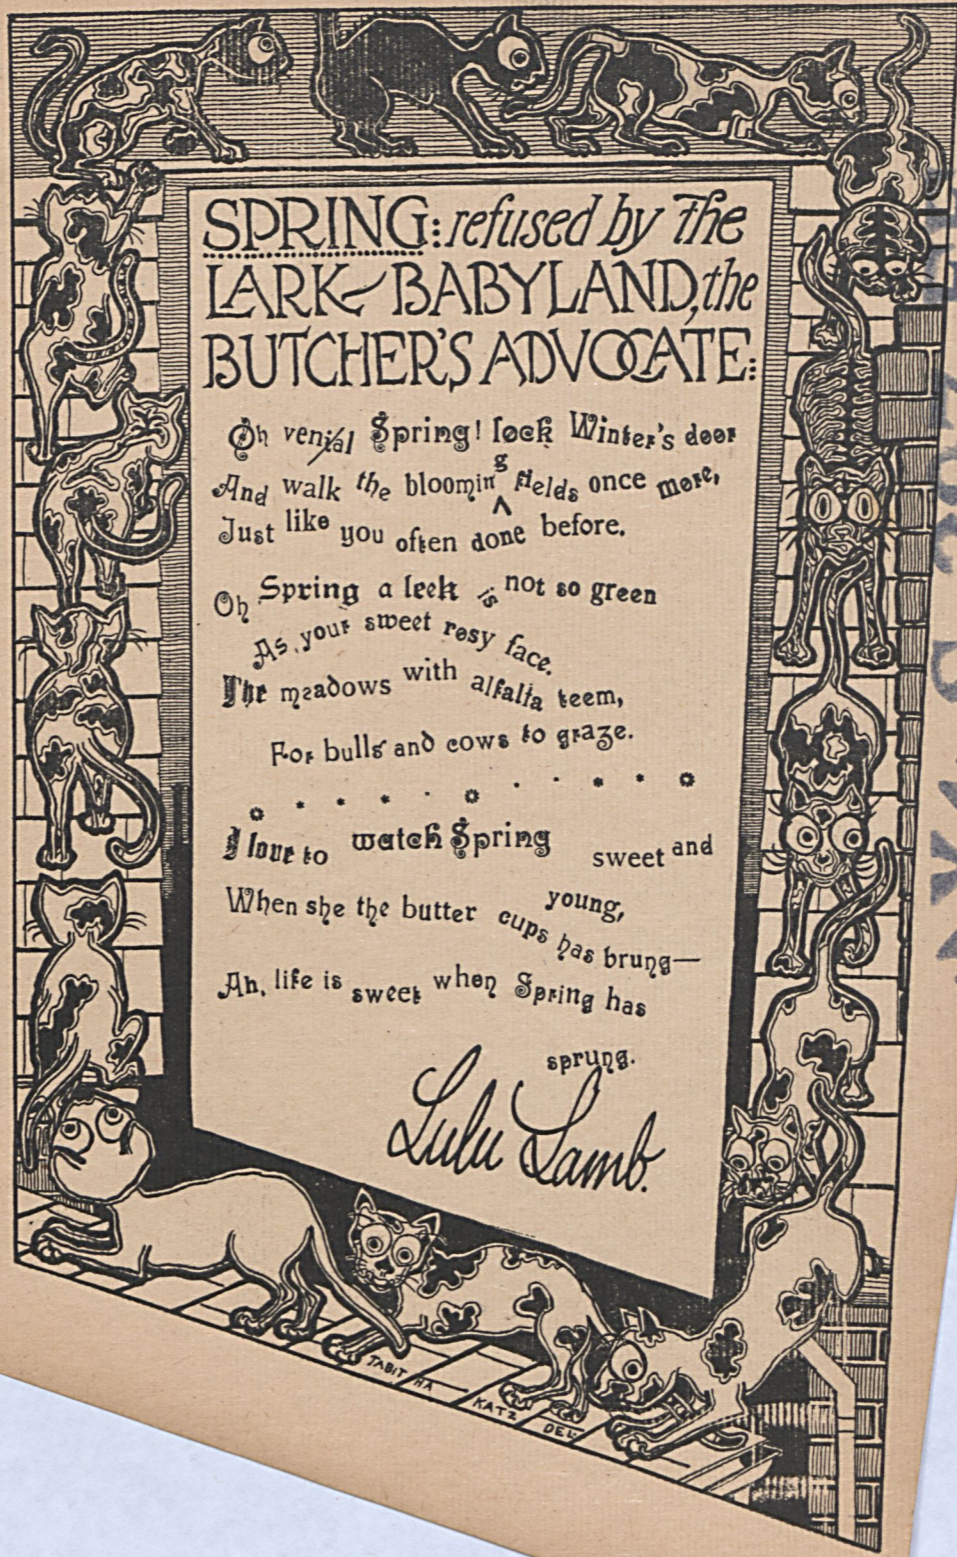 SPRING: refused by The
LARK - BABYLAND, the
BUTCHER'S ADVOCATE:
Oh venial Spring! lock Winter's door
And walk the blooming fields once more,
Just like you often done before.
Oh Spring a leek is not so green
As your sweet rosy face.
The meadows with alfalfa teem,
For bulls and cows to graze.
I love to watch Spring sweet and
young,
When she the butter cups has brung—
Ah, life is sweet when Spring has
sprung.
Lulu Lamb.
TABITHA KATZ DEL.